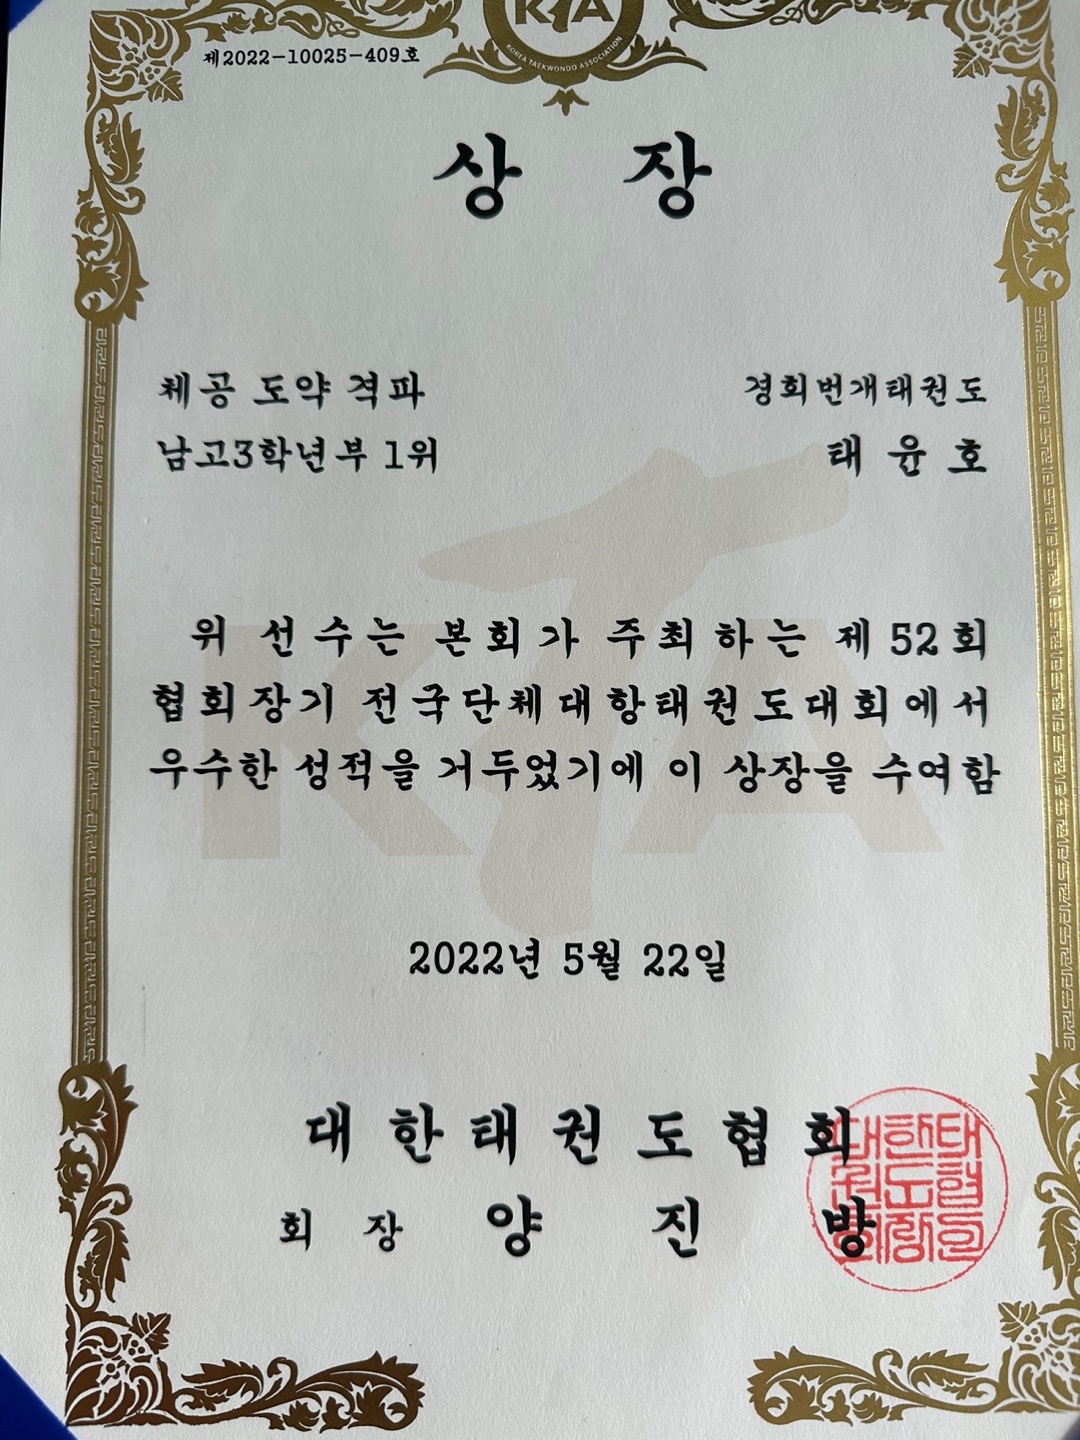 KTA
KOREA TAEKWONDO ASSOCIATION
제2022-10025-409호
상 장
체공 도약 격파
경희번개태권도
남고3학년부 1위
태 윤 호
위 선수는 본회가 주최하는 제52회
협회장기 전국단체대항태권도대회에서
우수한 성적을 거두었기에 이 상장을 수여함
2022년 5월 22일
대한태권도협회
회 장 양 진 방